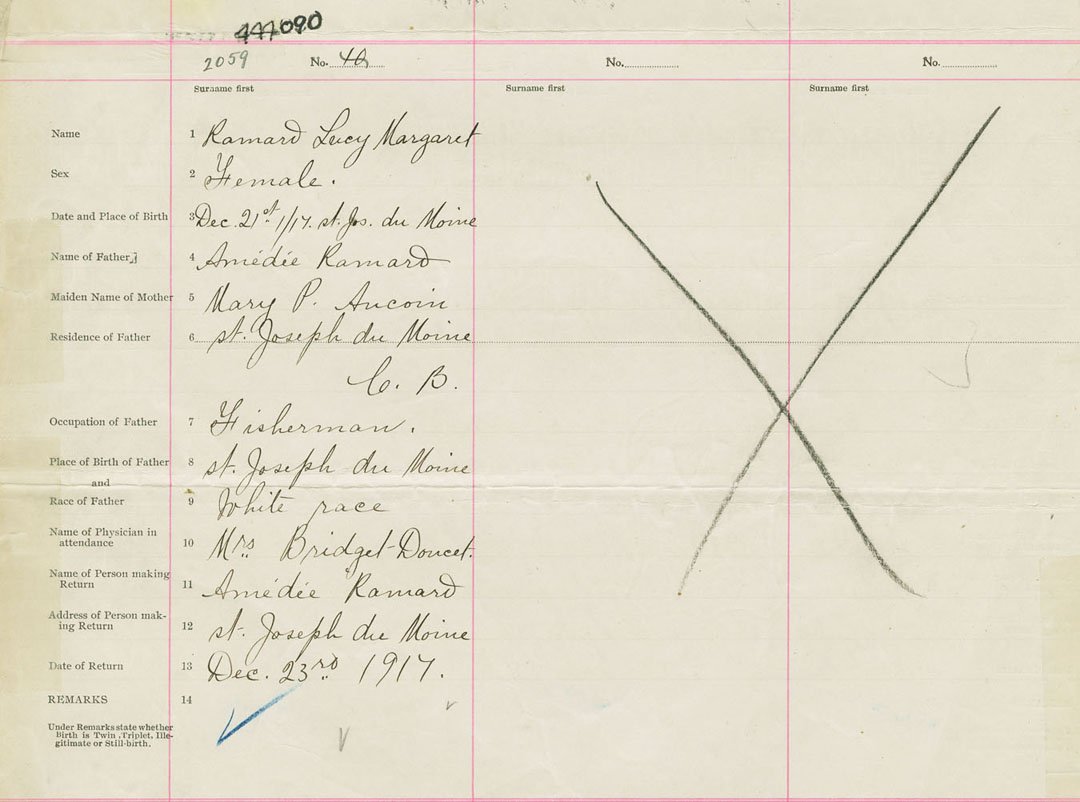 447090
2059 No. 49 No. No.
Surname first Surname first Surname first
Name 1 Ramard Lucy Margaret
Sex 2 Female.
Date and Place of Birth 3 Dec. 21st 1/17. st. Jos. du Moine
Name of Father 4 Amédée Ramard
Maiden Name of Mother 5 Mary P. Aucoin
Residence of Father 6 st. Joseph du Moine
C. B.
Occupation of Father 7 Fisherman.
Place of Birth of Father 8 st. Joseph du Moine
and
Race of Father 9 White race
Name of Physician in
attendance 10 Mrs Bridget Doucet.
Name of Person making
Return 11 Amédée Ramard
Address of Person mak-
ing Return 12 st. Joseph du Moine
Date of Return 13 Dec. 23rd 1917.
REMARKS 14
Under Remarks state whether
Birth is Twin, Triplet, Ille-
gitimate or Still-birth.